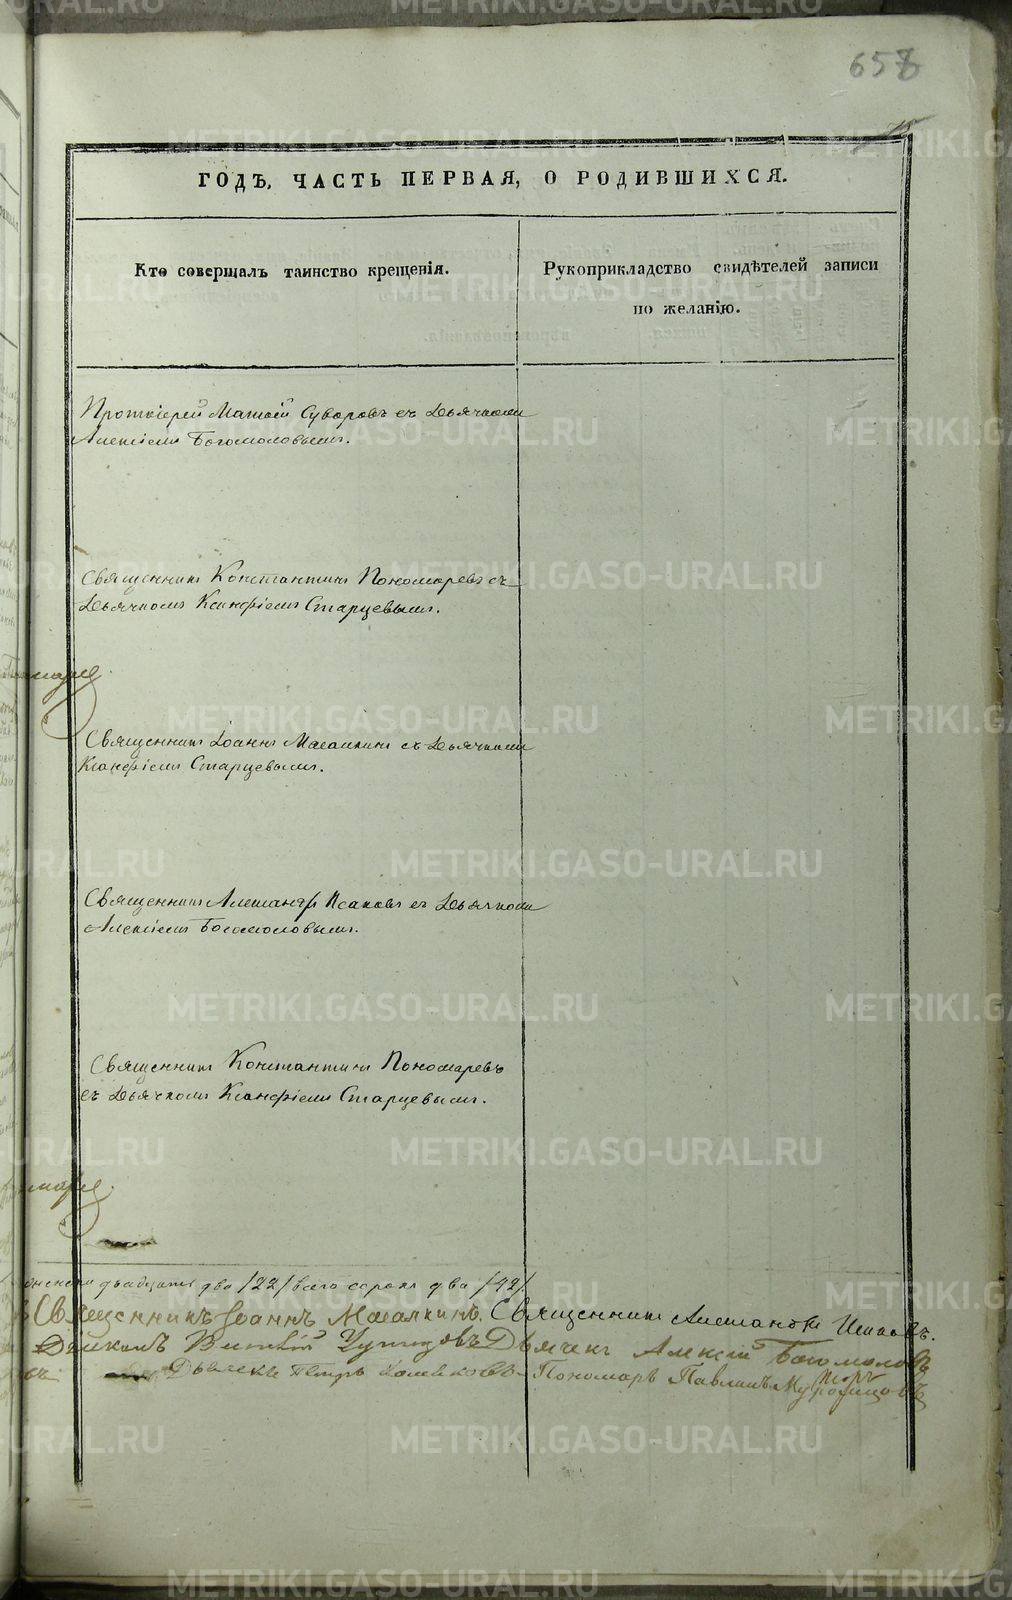 658
ГОДЪ, ЧАСТЬ ПЕРВАЯ, О РОДИВШИХСЯ.
Кто совершалъ таинство крещенія.
Рукоприкладство свидѣтелей записи
по желанію.
Протоіерей Матѳей Суворовъ съ Дьячкомъ
Алексіемъ Богомоловымъ.
Священникъ Константинъ Пономаревъ съ
Дьячкомъ Ксанфіемъ Старцевымъ.
Священникъ Іоаннъ Масалкинъ съ Дьячкомъ
Ксанфіемъ Старцевымъ.
Священникъ Александръ Исаковъ съ Дьячкомъ
Алексіемъ Богомоловымъ.
Священникъ Константинъ Пономаревъ
съ Дьячкомъ Ксанфіемъ Старцевымъ.
двадцать два /22/ всего сорокъ два /42/.
Священникъ Іоаннъ Масалкинъ. Священникъ Александръ Исаковъ.
Дьячекъ Алексій Богомоловъ
Дьячекъ Петръ Пономарь Павлинъ
METRIKI.GASO-URAL.RU